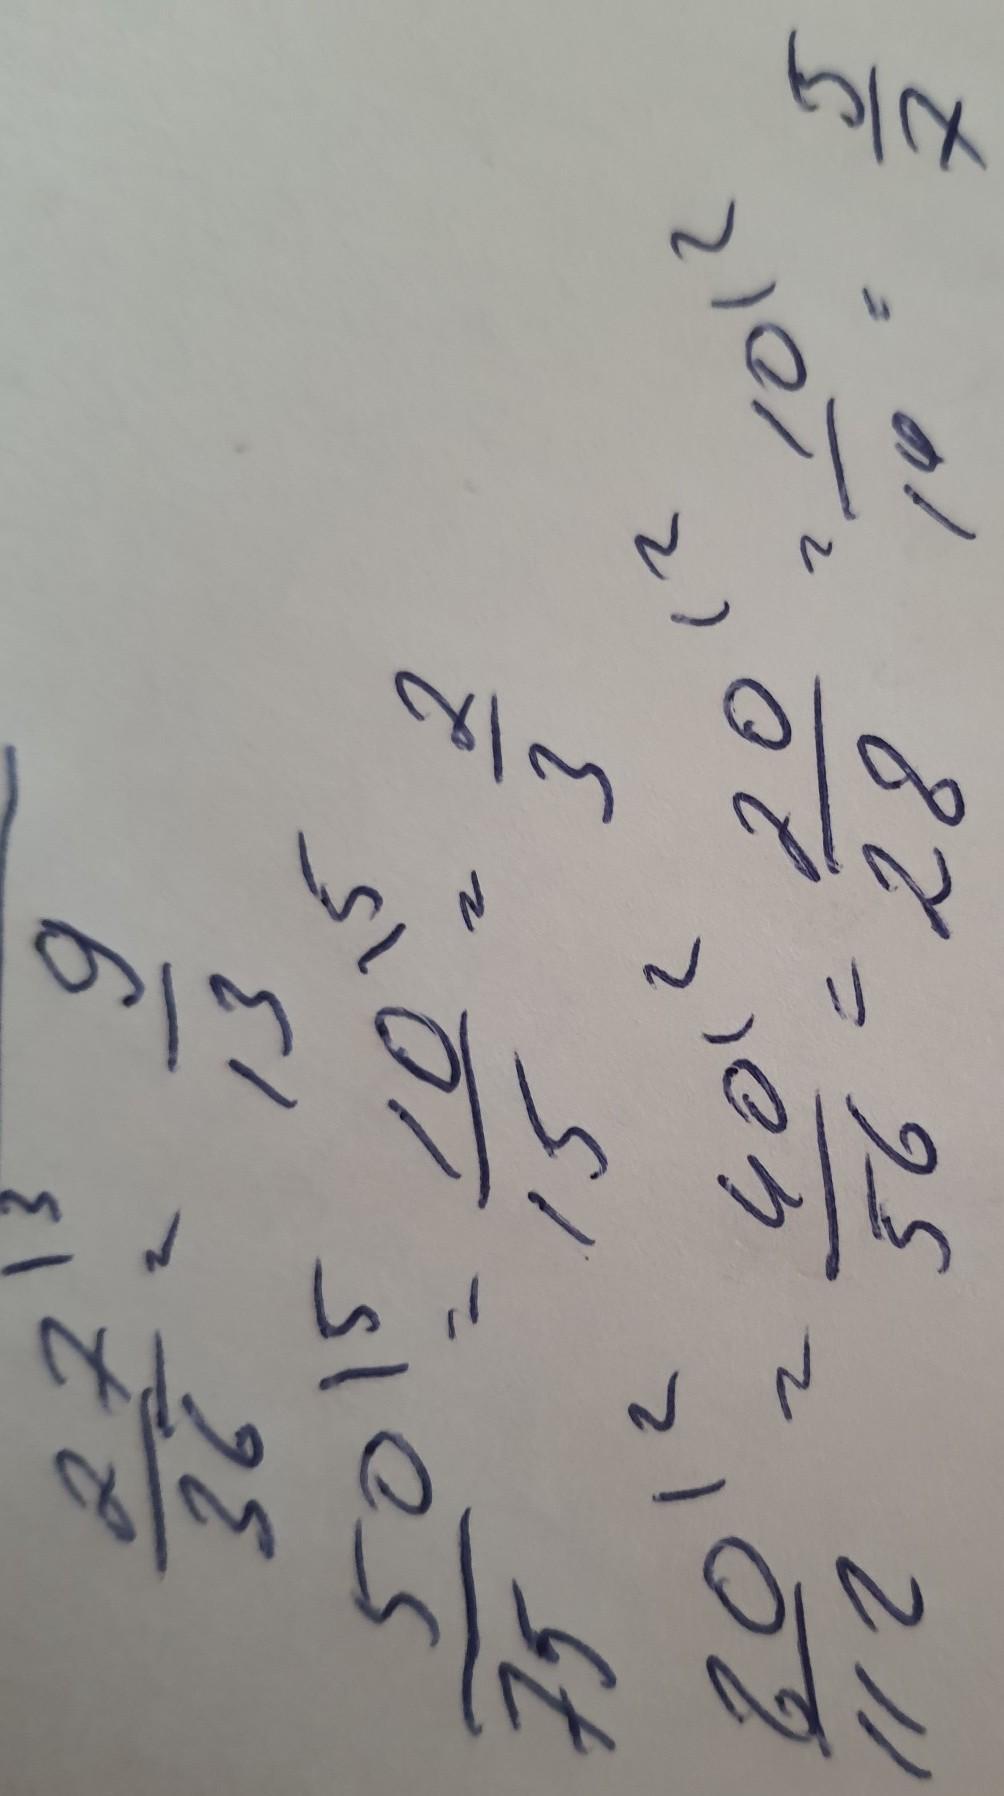 27/36 |3 = 9/13
50/75 |5 = 10/15 |5 = 2/3
80/112 |2 = 40/56 |2 = 20/28 |2 = 10/14 |2 = 5/7